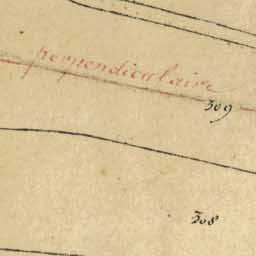 perpendiculaire
309
208